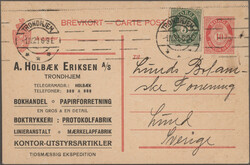 BREVKORT – CARTE POSTALE
TRONDHJEM
TRONDHJEM
A. HOLBÆK ERIKSEN A/S
TRONDHJEM
TELEGRAMADR.: HOLBÆK
TELEFONER:
BOKHANDEL + PAPIRFORRETNING
EN GROS & EN DETAIL
BOKTRYKKERI : PROTOKOLFABRIK
LINIERANSTALT + MÆRKELAPFABRIK
KONTOR-UTSTYRSARTIKLER
TIDSMÆSSIG EKSPEDITION
Lunds Botani-
ske Forening
Lund
Sverige